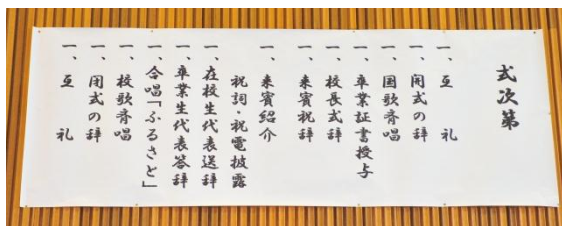 式次第
一、互礼
一、開式の辞
一、国歌斉唱
一、卒業証書授与
一、校長式辞
一、来賓祝辞
一、来賓紹介
祝詞・祝電披露
一、在校生代表送辞
一、卒業生代表答辞
一、合唱「ふるさと」
一、校歌斉唱
一、閉式の辞
一、互礼